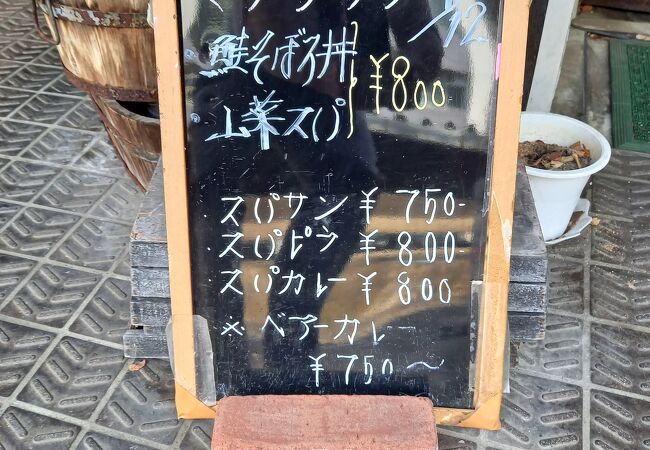 4/12
鮭そばろ丼
山菜スパ
¥800
スパサン ¥750-
スパピラ ¥800-
スパカレー ¥800
※ベアーカレー
¥750～